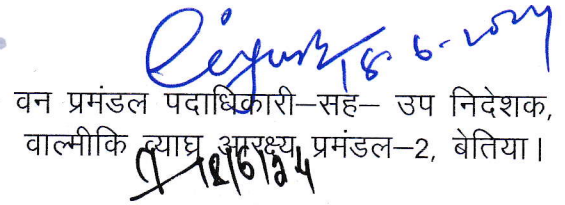 18-6-2024
वन प्रमंडल पदाधिकारी–सह– उप निदेशक,
वाल्मीकि व्याघ्र आरक्ष्य, प्रमंडल–2, बेतिया।
18/6/24